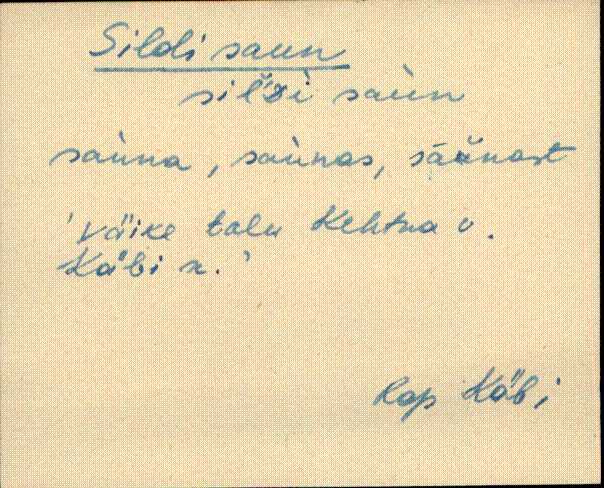 Sildi saun
sil'ᴅi saùn
saùna, saùnas, sàùnast
'väike talu Kehtna v.
Käbi n.'
Rap Käbi